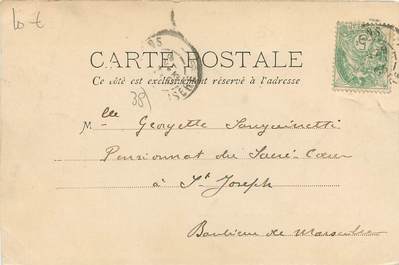 10 €
CARTE POSTALE
Ce côté est exclusivement réservé à l'adresse
38)
Mlle Georgette Sanguinetti
Pensionnat du Sacré-Cœur
à St Joseph
Banlieue de Marseille